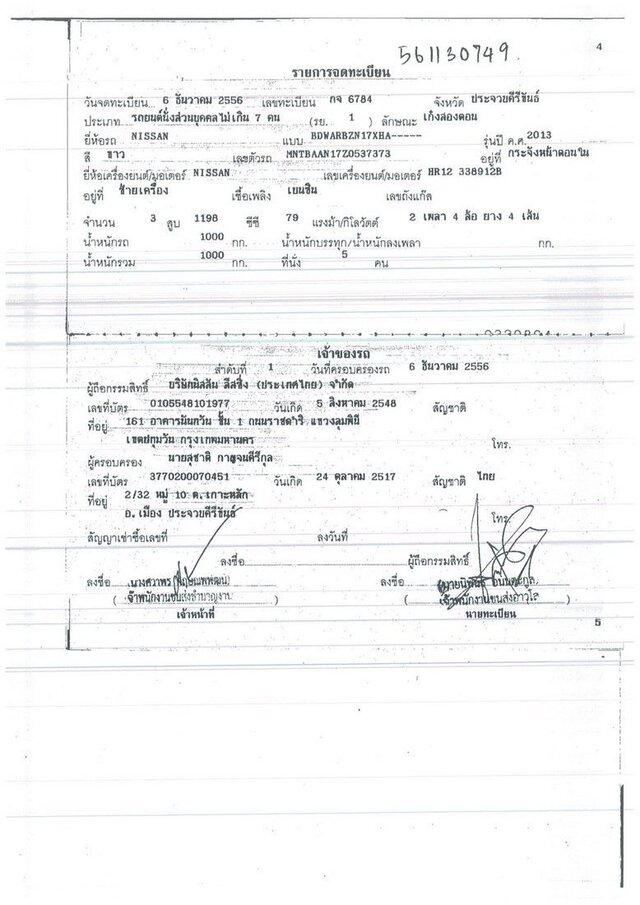 561130749
4
รายการจดทะเบียน
วันจดทะเบียน 6 ธันวาคม 2556 เลขทะเบียน กจ 6784 จังหวัด ประจวบคีรีขันธ์
ประเภท รถยนต์นั่งส่วนบุคคลไม่เกิน 7 คน (รย. 1 ) ลักษณะ เก๋งสองตอน
ยี่ห้อรถ NISSAN แบบ BDWARBZN17XHA----- รุ่นปี ค.ศ. 2013
สี ขาว เลขตัวรถ MNTBAAN17Z0537373 อยู่ที่ กระจังหน้าตอนใน
ยี่ห้อเครื่องยนต์/มอเตอร์ NISSAN เลขเครื่องยนต์/มอเตอร์ HR12 338912B
อยู่ที่ ซ้ายเครื่อง เชื้อเพลิง เบนซิน เลขถังแก๊ส
จำนวน 3 สูบ 1198 ซีซี 79 แรงม้า/กิโลวัตต์ 2 เพลา 4 ล้อ ยาง 4 เส้น
น้ำหนักรถ 1000 กก. น้ำหนักบรรทุก/น้ำหนักลงเพลา กก.
น้ำหนักรวม 1000 กก. ที่นั่ง 5 คน
เจ้าของรถ
ลำดับที่ 1 วันที่ครอบครองรถ 6 ธันวาคม 2556
ผู้ถือกรรมสิทธิ์ บริษัทนิสสัน ลีสซิ่ง (ประเทศไทย) จำกัด
เลขที่บัตร 0105548101977 วันเกิด 5 สิงหาคม 2548 สัญชาติ
ที่อยู่ 161 อาคารนันทวัน ชั้น 1 ถนนราชดำริ แขวงลุมพินี
เขตปทุมวัน กรุงเทพมหานคร โทร.
ผู้ครอบครอง นายสุชาติ กาญจนคีรีกุล
เลขที่บัตร 3770200070451 วันเกิด 24 ตุลาคม 2517 สัญชาติ ไทย
ที่อยู่ 2/32 หมู่ 10 ต.เกาะหลัก
อ.เมือง ประจวบคีรีขันธ์ โทร.
สัญญาเช่าซื้อเลขที่ ลงวันที่
ลงชื่อ ผู้ถือกรรมสิทธิ์
ลงชื่อ ลงชื่อ
( เจ้าพนักงานขนส่งชำนาญงาน ) ( เจ้าพนักงานขนส่งอาวุโส )
เจ้าหน้าที่ นายทะเบียน
5